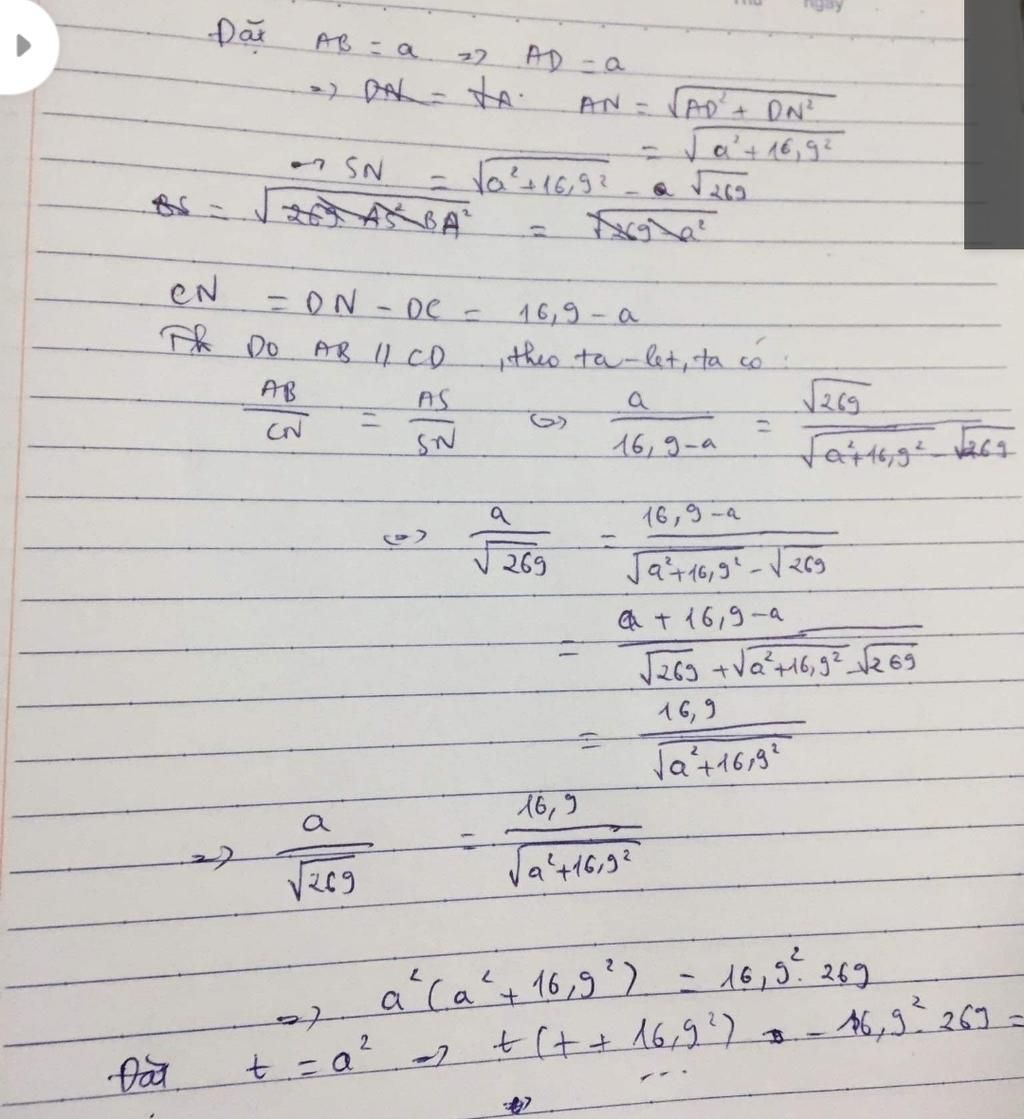 Thứ ngày
Đặt AB = a => AD = a
=> AN = √(AD² + DN²)
= √(a² + 16,9²)
-> SN = √(a² + 16,9²) - √269
BS = √(269 AS² BA²) = √(269 - a²)
CN = DN - DC = 16,9 - a
Do AB // CD, theo ta-let, ta có:
AB/CN = AS/SN <=> a/(16,9-a) = √269/(√(a²+16,9²) - √269)
<=> a/√269 = (16,9-a)/(√(a²+16,9²) - √269)
= (a + 16,9 - a)/(√269 + √(a²+16,9²) - √269)
= 16,9/√(a²+16,9²)
=> a/√269 = 16,9/√(a²+16,9²)
=> a²(a² + 16,9²) = 16,9². 269
Đặt t = a² -> t(t + 16,9²) - 16,9². 269 =
...
=>